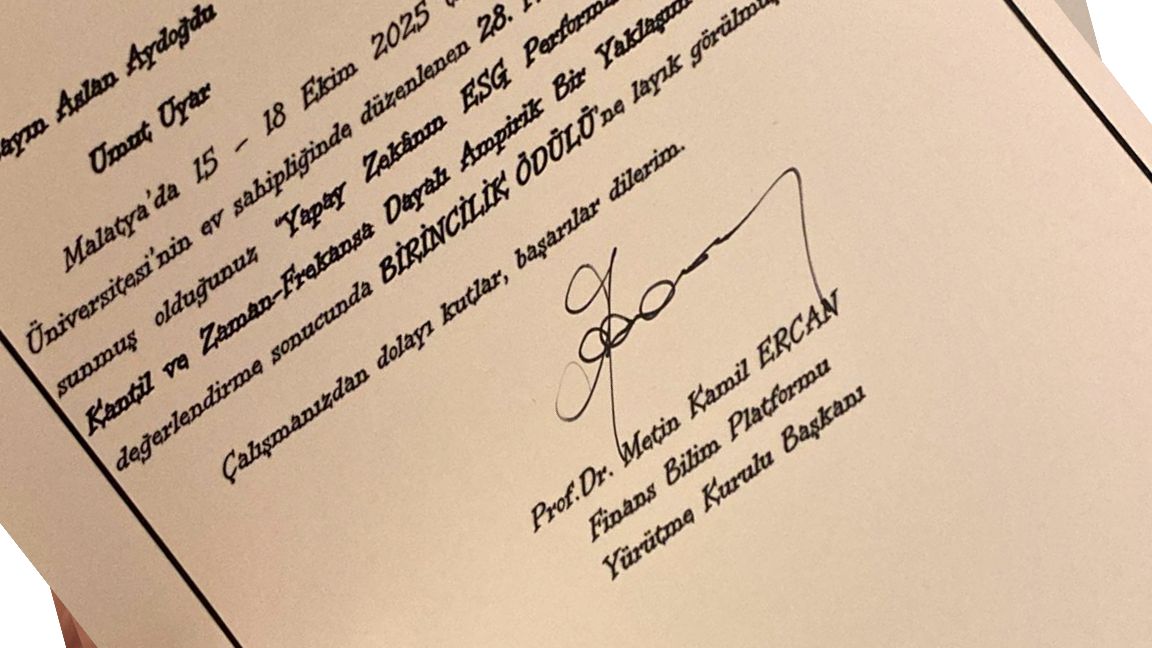 Aslan Aydoğdu
Umut Uyar
Malatya'da 15 - 18 Ekim 2025
Üniversitesi'nin ev sahipliğinde düzenlenen 28.
sunmuş olduğunuz "Yapay Zekânın ESG
Kantil ve Zaman-Frekansa Dayalı Ampirik Bir
değerlendirme sonucunda BİRİNCİLİK ÖDÜLÜ'ne layık
Çalışmanızdan dolayı kutlar, başarılar dilerim.
Prof.Dr. Metin Kamil ERCAN
Finans Bilim Platformu
Yürütme Kurulu Başkanı